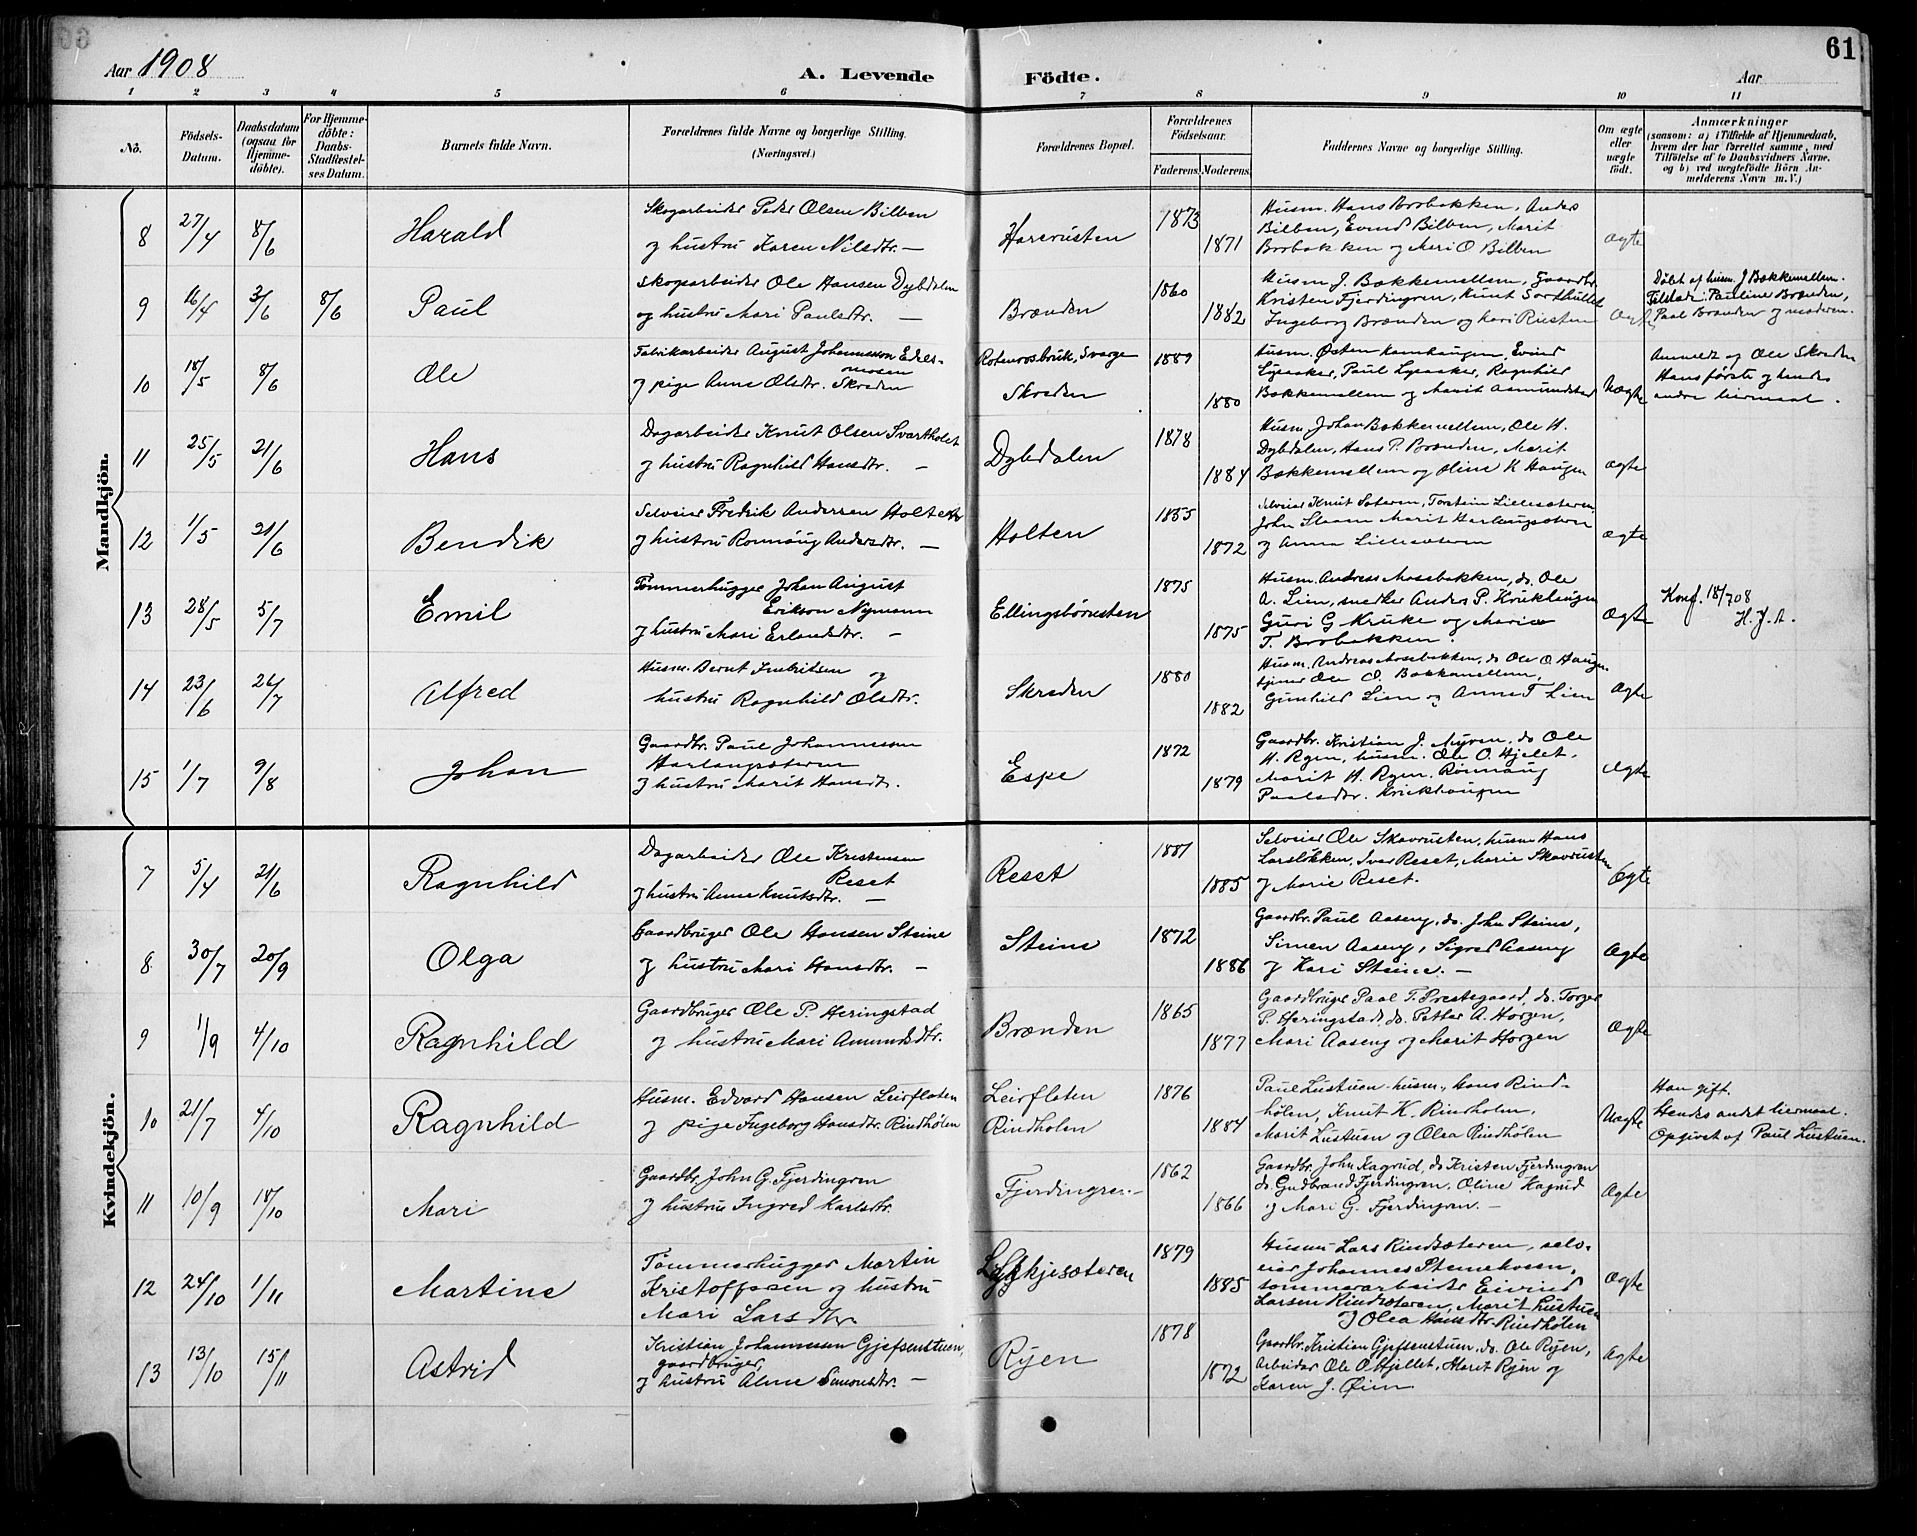 Aar 1908
A. Levende
Födte.
Aar
61
1 2 3 4 5 6 7 8 9 10 11
No.
Födsels-
Datum.
Daabsdatum
(ogsaa for
Hjemme-
döbte).
For Hjemme-
döbte:
Daabs-
Stadfæstel-
ses Datum.
Barnets fulde Navn.
Forældrenes fulde Navne og borgerlige Stilling.
(Næringsvei.)
Forældrenes Bopæl.
Forældrenes
Födselsaar.
Faderens. Moderens.
Faddernes Navne og borgerlige Stilling.
Om ægte
eller
uægte
födt.
Anmærkninger
(saasom: a) i Tilfælde af Hjemmedaab,
hvem der har forrettet samme, med
Tilföielse af to Daabsvidners Navne,
og b) ved uægtefödte Börn An-
melderens Navn m. V.)
Mandkjön.
8 27/4 8/6 Harald
Skogarbeider Peder Olsen Bilben
og hustru Karen Nilsdtr. —
1873
1871
Husm. Hans Brobakken, Anders
Bilben, Evind Bilben, Marit
Brobakken og Mari O Bilben
ægte
9 16/4 3/6 8/6 Paul
Skogarbeider Ole Hansen Dybdalen
og hustru Mari Paulsdtr. —
Brænden
1860
1882
Husm J. Bakkemellem, Gaardbr.
Kristen Fjerdingren, Knut Sorthullet
Ingeborg Brænden og Kari Rusten
Ægte
Döbt af husm. J Bakkemellem.
Tilstede: Pauline Brænden,
Paul Brænden og moderen.
10 18/5 8/6 Ole
Fabrikarbeider August Johannesson Edels-
mosen
og pige Anne Olsdtr. Skreden
Rotenrosbruk, Sverge
Skreden
1889
1880
Husm. Østen Kamhaugen, Evind
Lysaaker, Paul Lysaaker, Ragnhild
Bakkemellem og Marit Aamundstad
Uægte
Anmeldt og Ole Skreden
Hans første og hendes
andre leiermaal.
11 25/5 21/6 Hans
Dagarbeider Knut Olsen Svartholet
og hustru Ragnhild Hansdtr. —
Dybdalen
1878
1884
Husm Johan Bakkemellem, Ole H.
Dybdalen, Hans P. Brænden, Marit
Bakkemellem og Oline K Haugen
ægte
12 1/5 21/6 Bendik
Selveier Fredrik Andersen Holten
og hustru Ronnaug Andersdtr. —
Holten
1855
1872
Selveier Knut Sæteren, Torstein Lillesæteren
John Slaaen Marit Harlaugsæteren
og Anna Lillesæteren
ægte
13 28/5 5/7 Emil
Tømmerhugger Johan August
Erikson Nymann
og hustru Mari Erlandsdtr. —
Ellingsbørusten
1875
1875
Husm. Andreas Mosebakken, do Ole
A. Lien, snedker Anders P. Krukhaugen
Guri G. Kruke og Marie
T. Brobakken.
Ægte
Konf. 18/7 08
H. J. A.
14 23/6 26/7 Alfred
Husm. Bernt Imbritsen og
hustru Ragnhild Olsdtr.
Skreden
1880
1882
Husm. Andreas Mosebakken, do Ole O. Haugen
tjener Ole O. Bakkemellem,
Gunhild Lien og Anne T Lien
Ægte
15 1/7 9/8 Johan
Gaardbr. Paul Johannessen
Harlaugsæteren
og hustru Marit Hansdtr.
Espe
1872
1879
Gaardbr. Kristian J. Myren, do Ole
H. Ryen, husm. Ole O. Hjelet,
Marit H. Ryen, Rönnaug
Paulsdtr. Krukhaugen
Ægte
Kvindekjön.
7 5/4 21/6 Ragnhild
Dagarbeider Ole Kristensen
Reset
og hustru Anne Knutsdtr. —
Reset
1881
1885
Selveier Ole Skavrusten, husm Hans
Larsløkken, Ivar Reset, Marie Skavrusten
og Marie Reset.
Ægte
8 30/7 20/9 Olga
Gaardbruger Ole Hansen Steine
og hustru Mari Hansdtr. —
Steine
1872
1886
Gaardbr. Paul Aaseng, do. John Steine,
Simen Aaseng, Sigrid Aaseng
og Kari Steine. —
Ægte
9 1/9 4/10 Ragnhild
Gaardbruger Ole P. Heringstad
og hustru Mari Amundsdtr.
Brænden
1865
1877
Gaardbruger Paal T. Prestegaard, do. Torger
P. Heringstad, do. Petter A. Horgen,
Mari Aaseng og Marit Horgen
Ægte
10 21/7 4/10 Ragnhild
Husm. Edvard Hansen Leirfloten
og pige Ingeborg Hansdtr. Rindhølen
Leirfloten
Rindhølen
1876
1884
Paul Lustuen husm., Hans Rind-
hölen, Knut K. Rindhølen,
Marit Lustuen og Olea Rindhölen
Uægte
Han gift.
Hendes andet leiermaal.
Opgivet af Paul Lustuen.
11 10/9 18/10 Mari
Gaardbr. John G. Fjerdingren
og hustru Ingred Karlsdtr.
Fjerdingren —
1862
1866
Gaardbr. John Kagrud, do Kristen Fjerdingren
do. Gudbrand Fjerdingren, Oline Kagrud
og Mari G. Fjerdingren. —
Ægte
12 24/10 1/11 Martine
Tømmerhugger Martin
Kristoffersen og hustru
Mari Larsdtr.
Lykjesæteren
1879
1885
Husm Lars Rindsæteren, selv-
eier Johannes Stennehosen,
tømmerarbeider Eivind
Larsen Rindsæteren, Marit Lustuen
og Olea Hansdtr. Rindhölen
Ægte
13 13/10 15/11 Astrid
Kristian Johannessen Gjefsenstuen,
gaardbruger,
og hustru Alme Simonsdtr. —
Ryen
1878
1872
Gaardbr. Kristian Gjefsenstuen, do. Ole Ryen,
Arbeider Ole O. Hjellet, Marit Ryen og
Karen J. Øien
Ægte